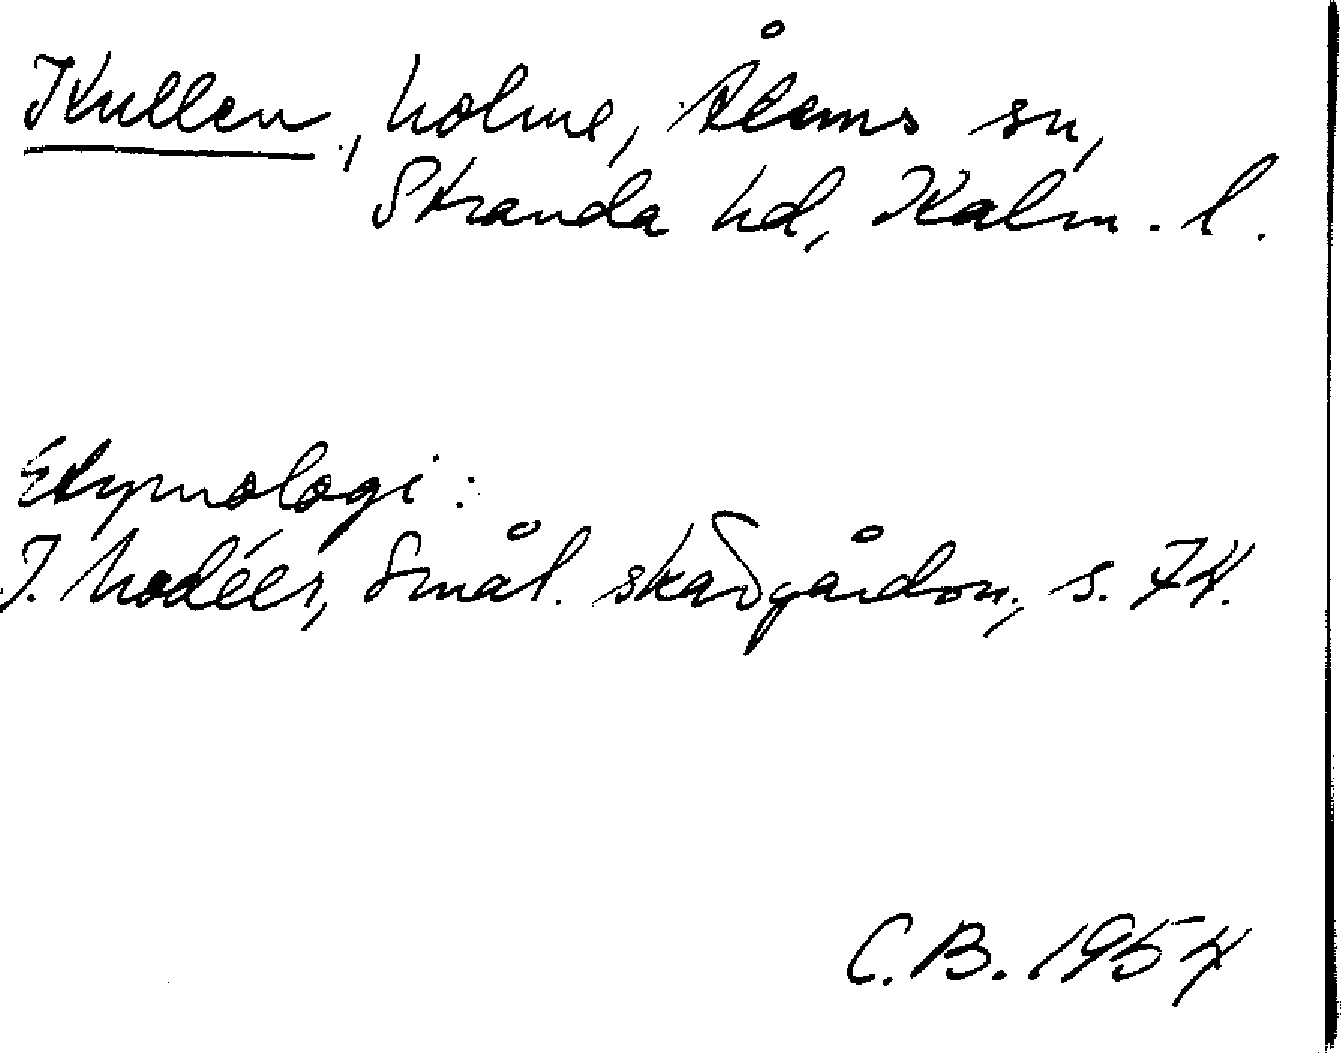 Kullen, holme, Ålems sn,
Stranda hd, Kalm. l.
Etymologi:
I. Modéer, Smål. skärgårdsn., s. 74.
C.B. 1954